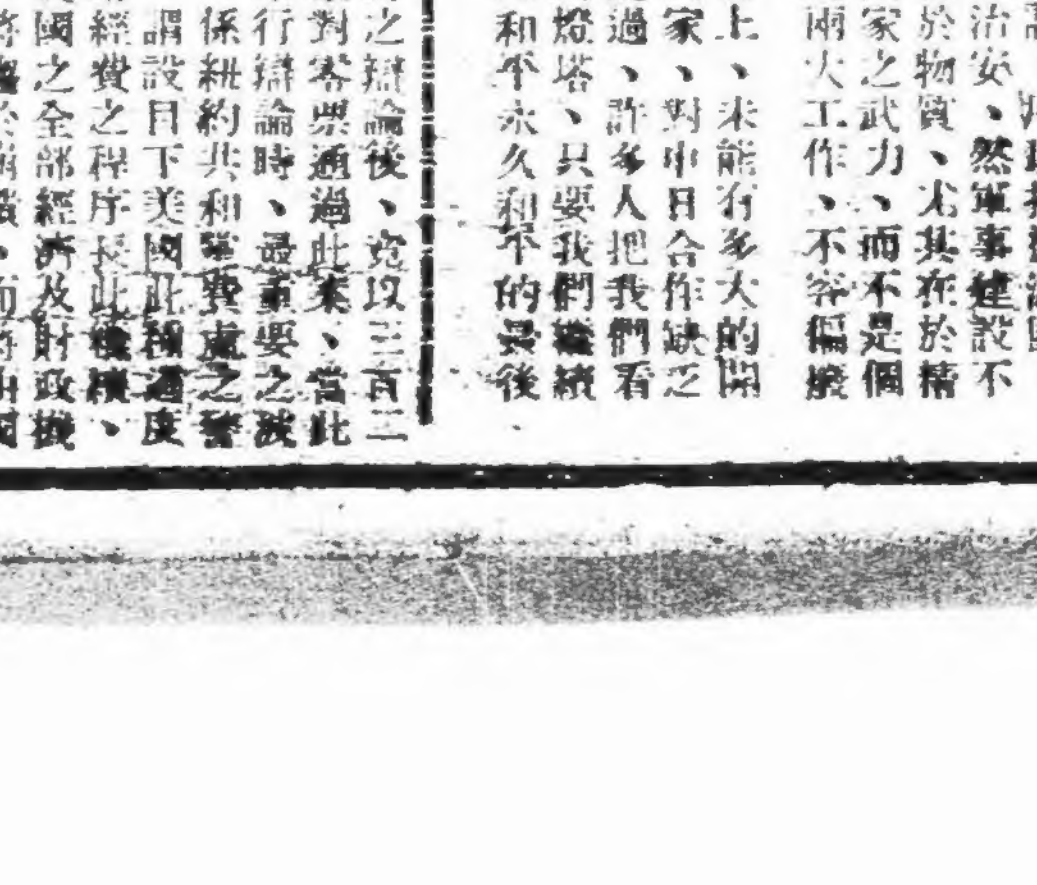 治安、然軍事建設不
於物質、尤其在於精
家之武力、而不是個
兩大工作、不容偏廢
上、未能有多大的開
家、對中日合作缺乏
過、許多人把我們看
燈塔、只要我們繼續
和平永久和平的最後
之辯論後、竟以三百三
對零票通過此案、當此
行辯論時、最重要之演
係紐約共和黨費處之警
謂設目下美國此種過度
經費之程序長此機積、
國之全部經濟及財政機